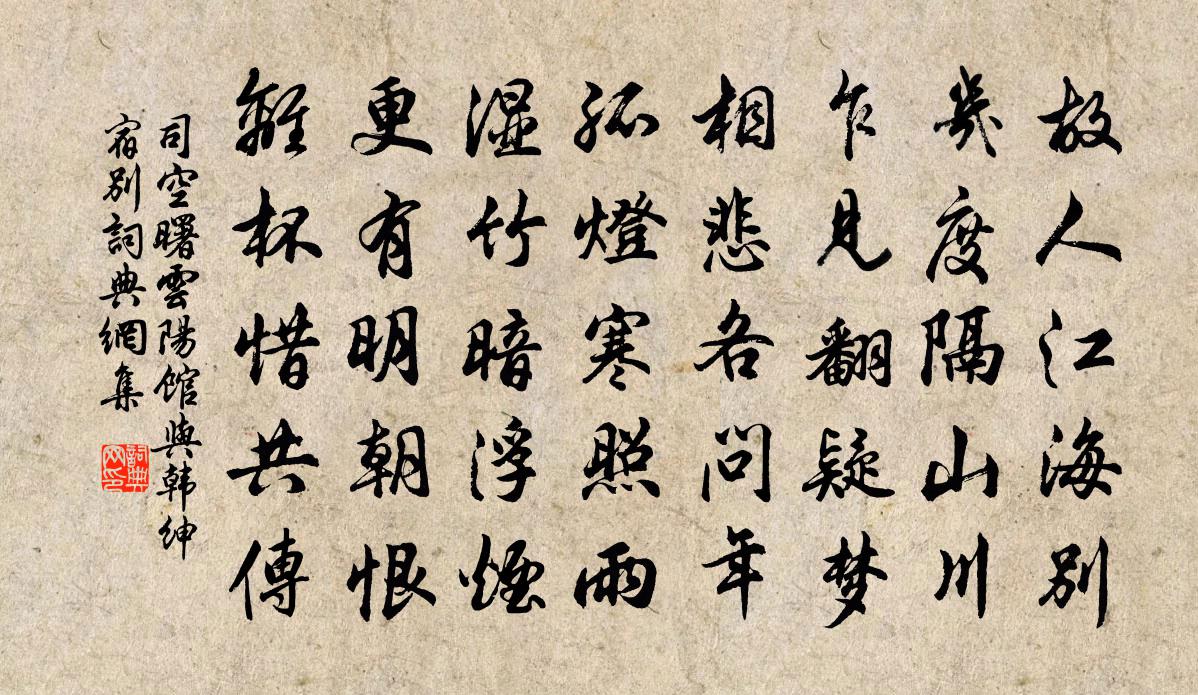 故人江海別
幾度隔山川
乍見翻疑梦
相悲各问年
孤燈寒照雨
湿竹暗浮煙
更有明朝恨
離杯惜共傳
司空曙雲陽館與韩紳
宿別詞典網集
詞典
网印